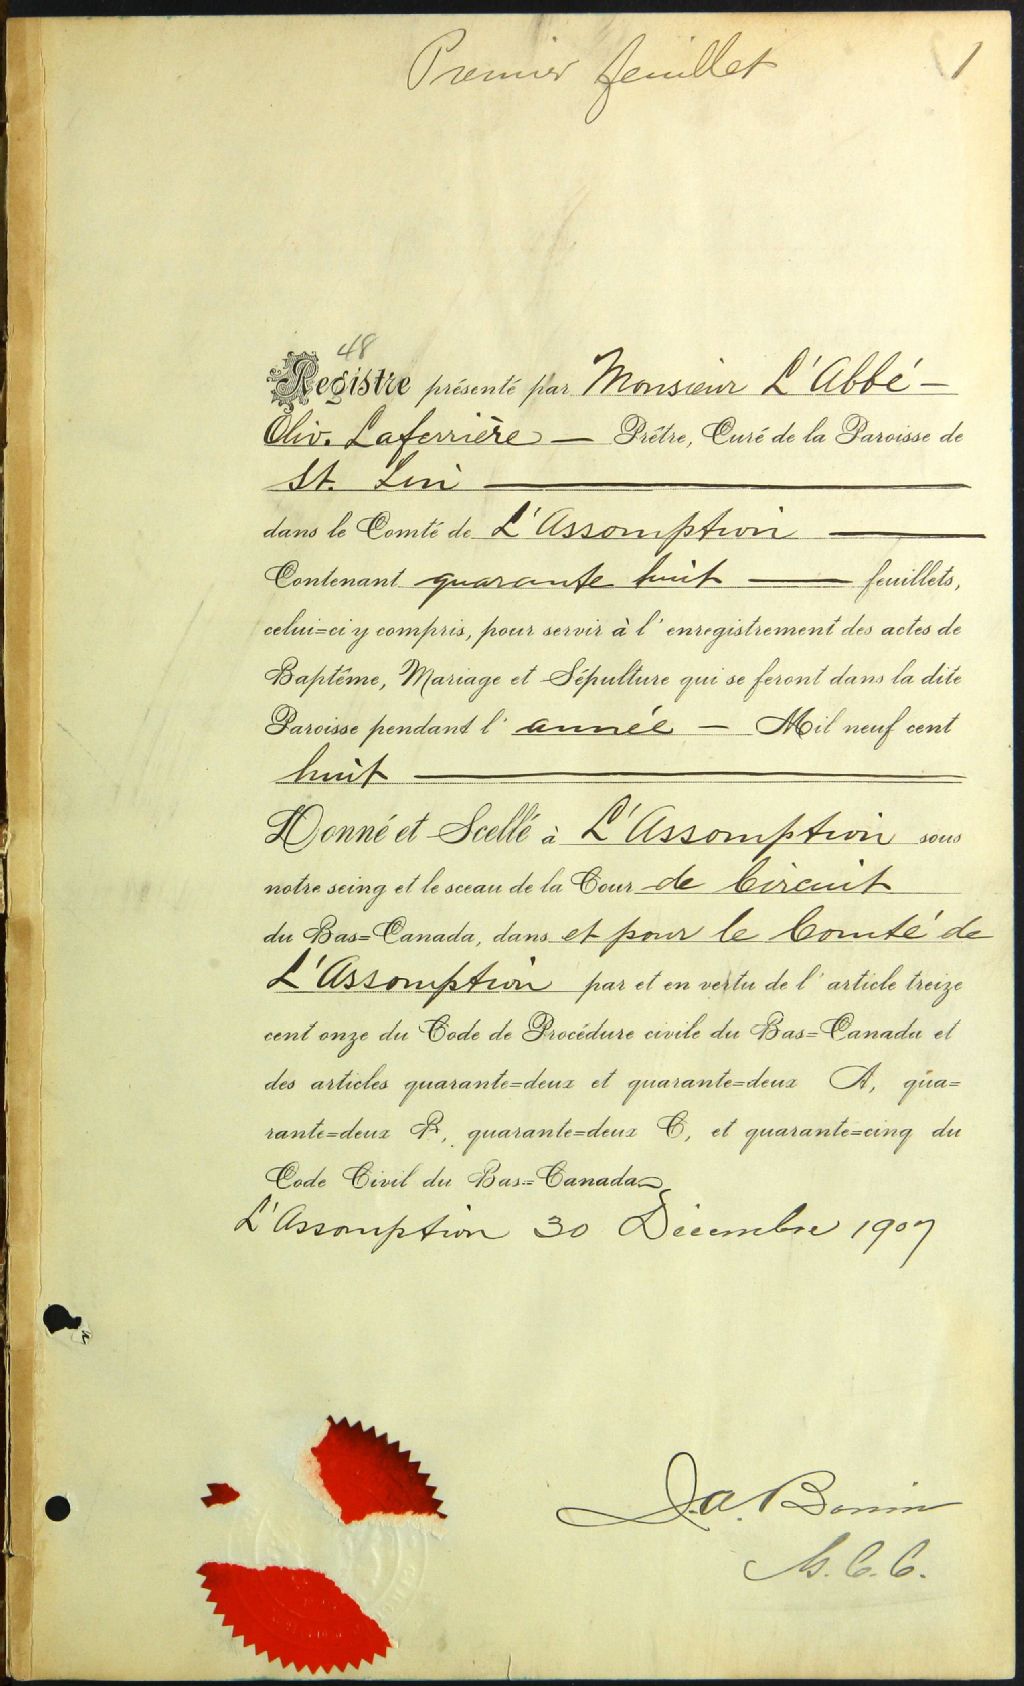 Premier feuillet 1
48
Registre présenté par Monsieur L'Abbé —
Oliv. Laferrière — Prêtre, Curé de la Paroisse de
St. Lin —
dans le Comté de L'Assomption —
Contenant quarante huit — feuillets,
celui=ci y compris, pour servir à l'enregistrement des actes de
Baptême, Mariage et Sépulture qui se feront dans la dite
Paroisse pendant l'année — Mil neuf cent
huit —
Donné et Scellé à L'Assomption sous
notre seing et le sceau de la Cour de Circuit
du Bas=Canada, dans et pour le Comté de
L'Assomption par et en vertu de l'article treize
cent onze du Code de Procédure civile du Bas=Canada et
des articles quarante=deux et quarante=deux A, qua=
rante=deux B, quarante=deux C, et quarante=cinq du
Code Civil du Bas=Canada
L'Assomption 30 Décembre 1907
J.A. Bonin